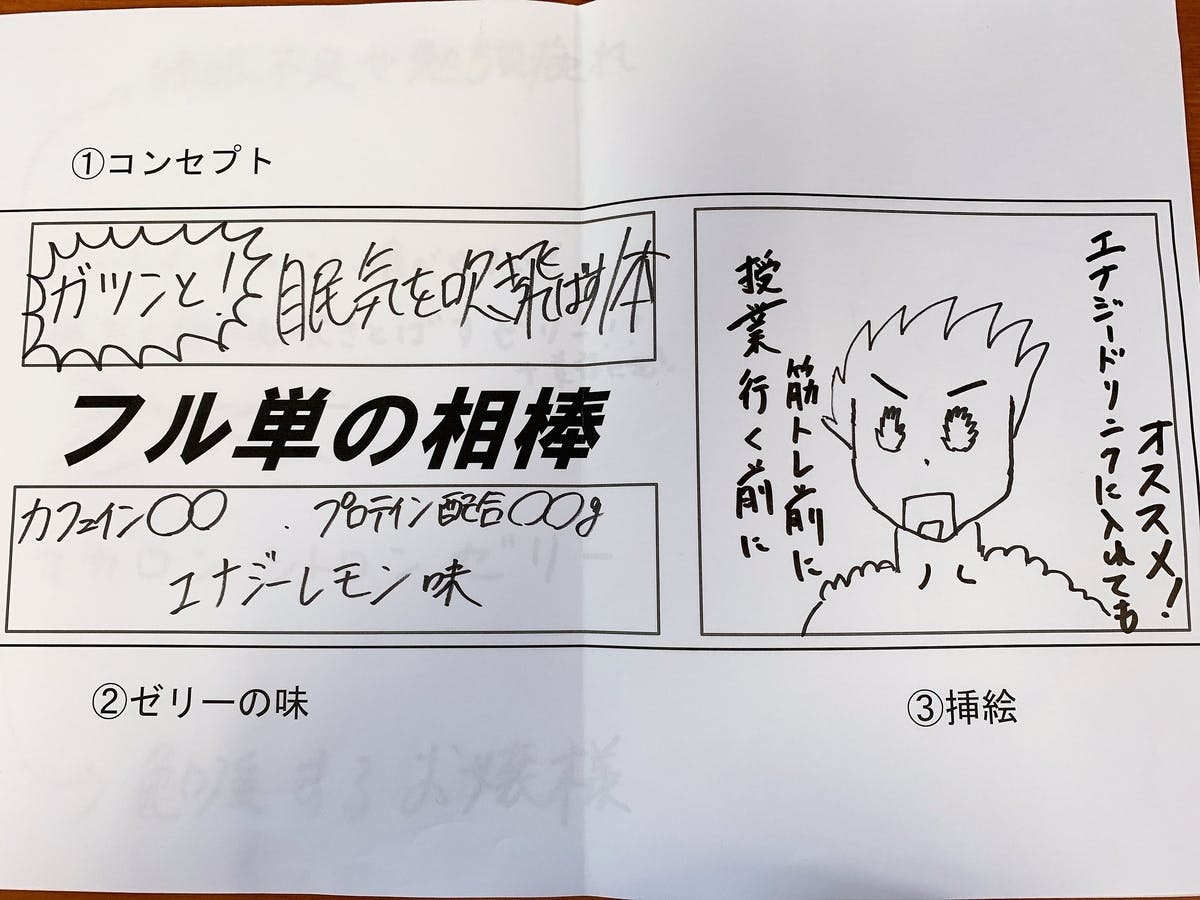 ①コンセプト
ガツンと!
眠気を吹き飛ばす1本
フル単の相棒
カフェイン〇〇 . プロテイン配合〇〇g
エナジーレモン味
②ゼリーの味
オススメ!
エナジードリンクに入れても
筋トレ前に
授業行く前に
③挿絵